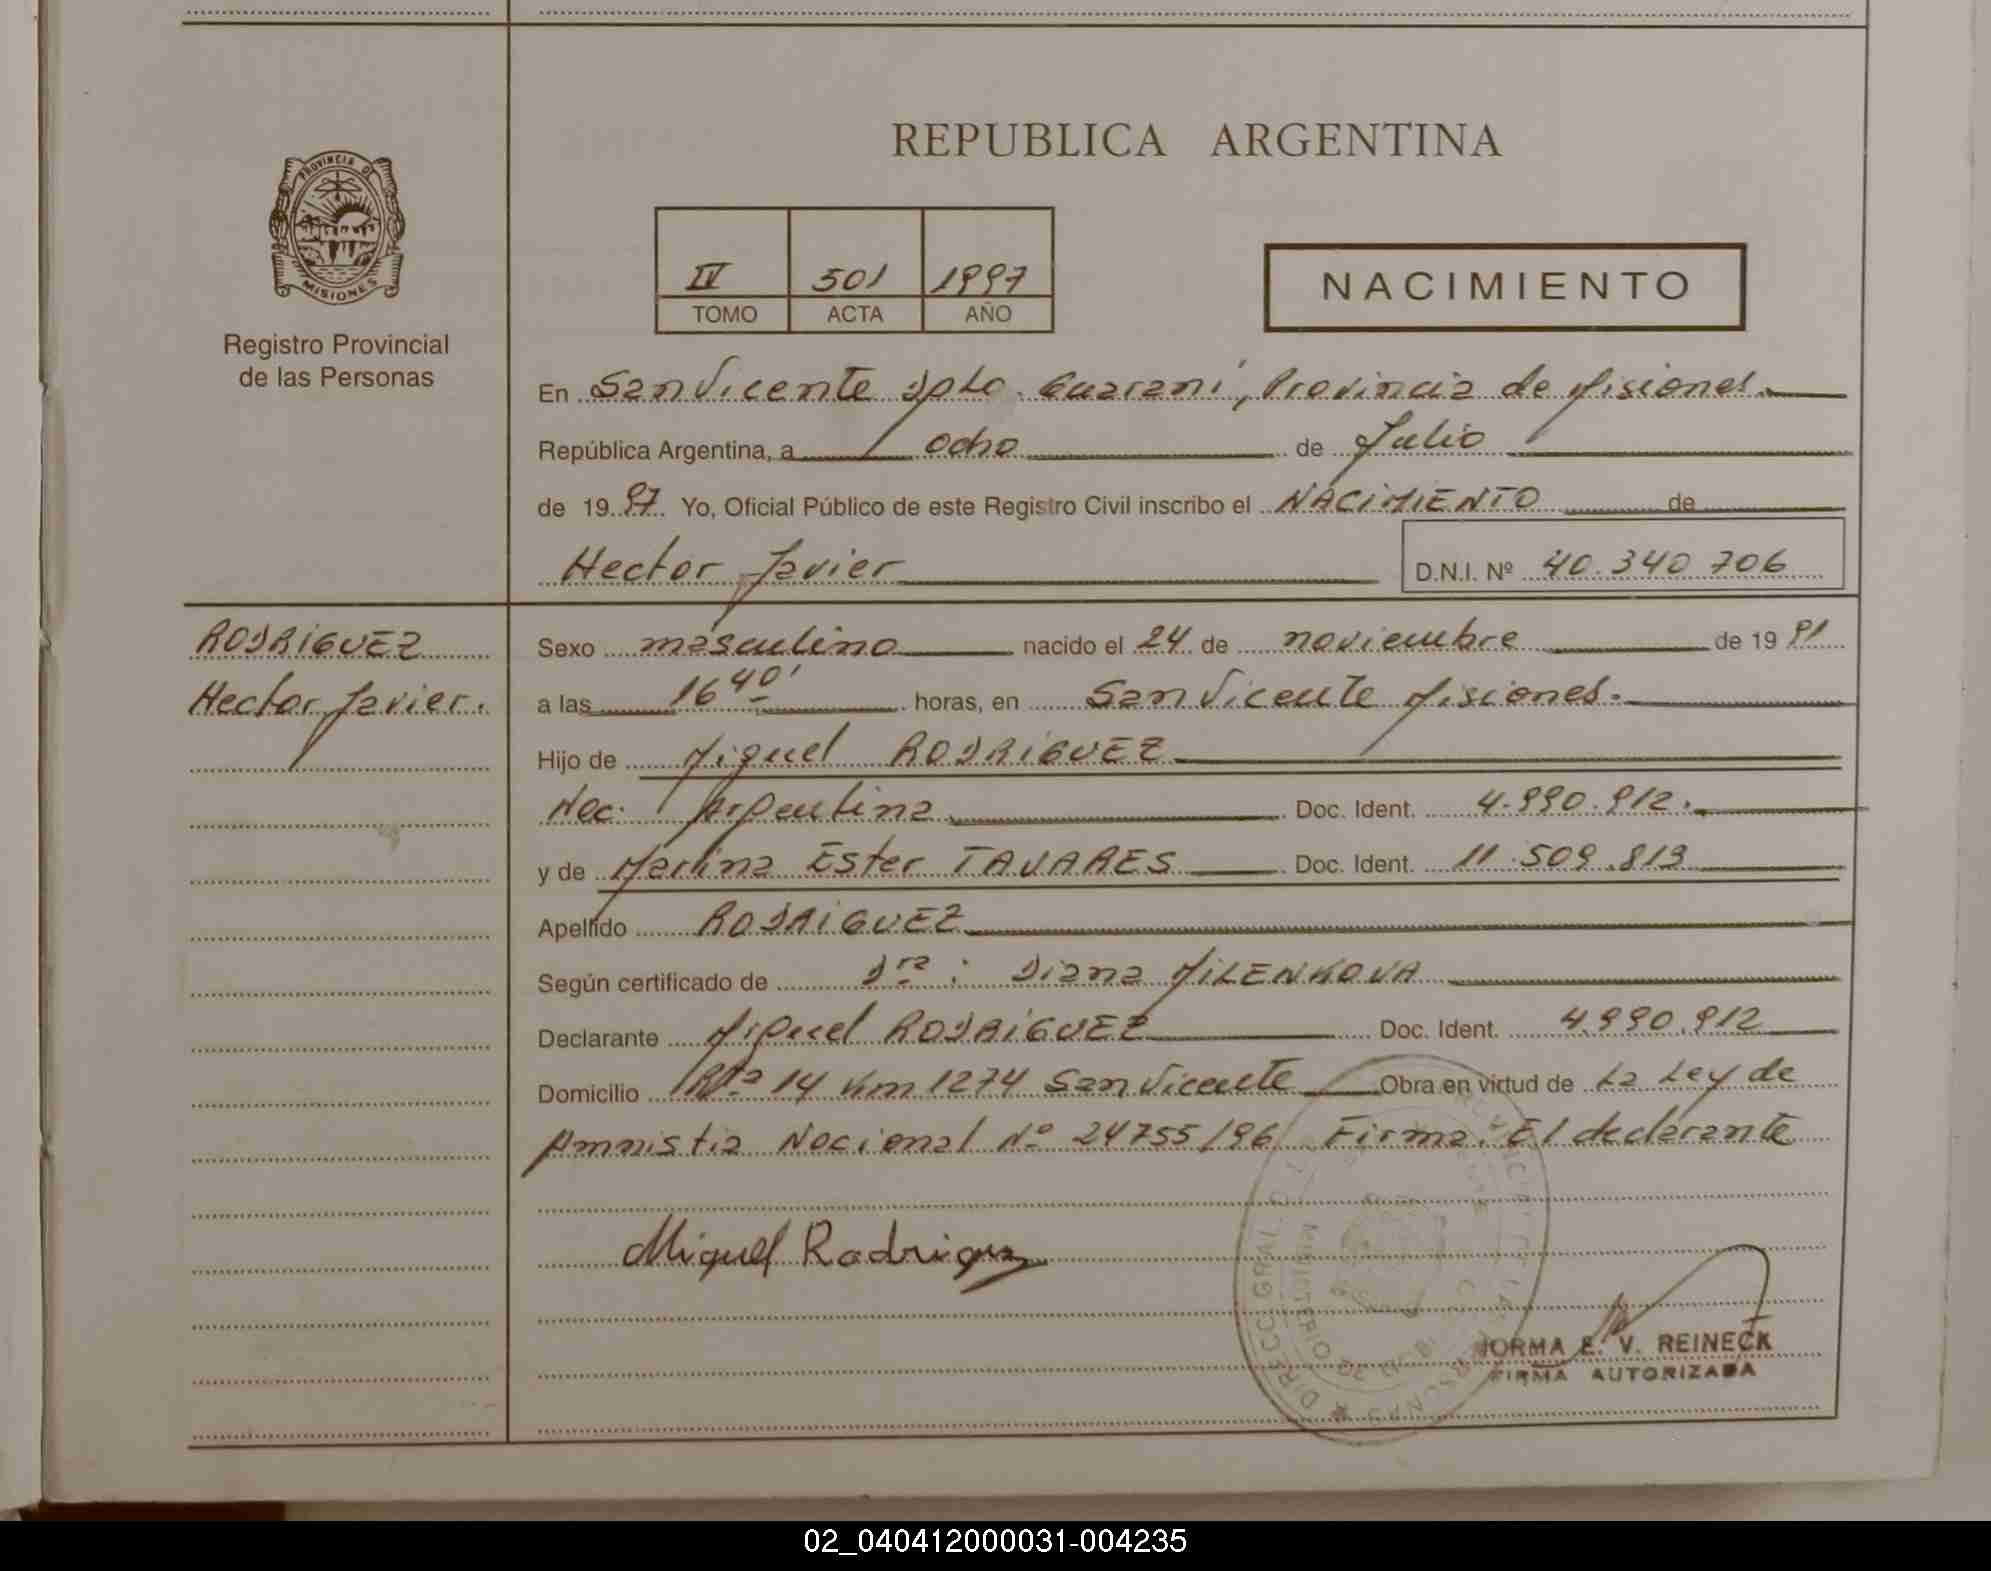 REPUBLICA ARGENTINA
PROVINCIA DE
MISIONES
Registro Provincial
de las Personas
IV 501 1997
TOMO ACTA AÑO
NACIMIENTO
En San Vicente Dpto. Guaraní, Provincia de Misiones.
República Argentina, a ocho de Julio
de 1997. Yo, Oficial Público de este Registro Civil inscribo el NACIMIENTO de
Hector Javier
D.N.I. Nº 40.340 706
RODRIGUEZ
Hector Javier.
Sexo masculino nacido el 24 de noviembre de 1991
a las 16 40' horas, en San Vicente Misiones.
Hijo de Miguel RODRIGUEZ
Nac. Argentina Doc. Ident. 4.990.912.
y de Marina Ester TAVARES Doc. Ident. 11.509.819
Apellido RODRIGUEZ
Según certificado de Dra: Diana MILENKOVA
Declarante Miguel RODRIGUEZ Doc. Ident. 4.990.912
Domicilio Rta 14 Km 1274 San Vicente Obra en virtud de La Ley de
Amnistia Nacional Nº 24755/96 Firma: El declarante
Miguel Rodriguez
DIRECC. GRAL.
MINISTERIO DE
NORMA E. V. REINECK
FIRMA AUTORIZADA
02_040412000031-004235